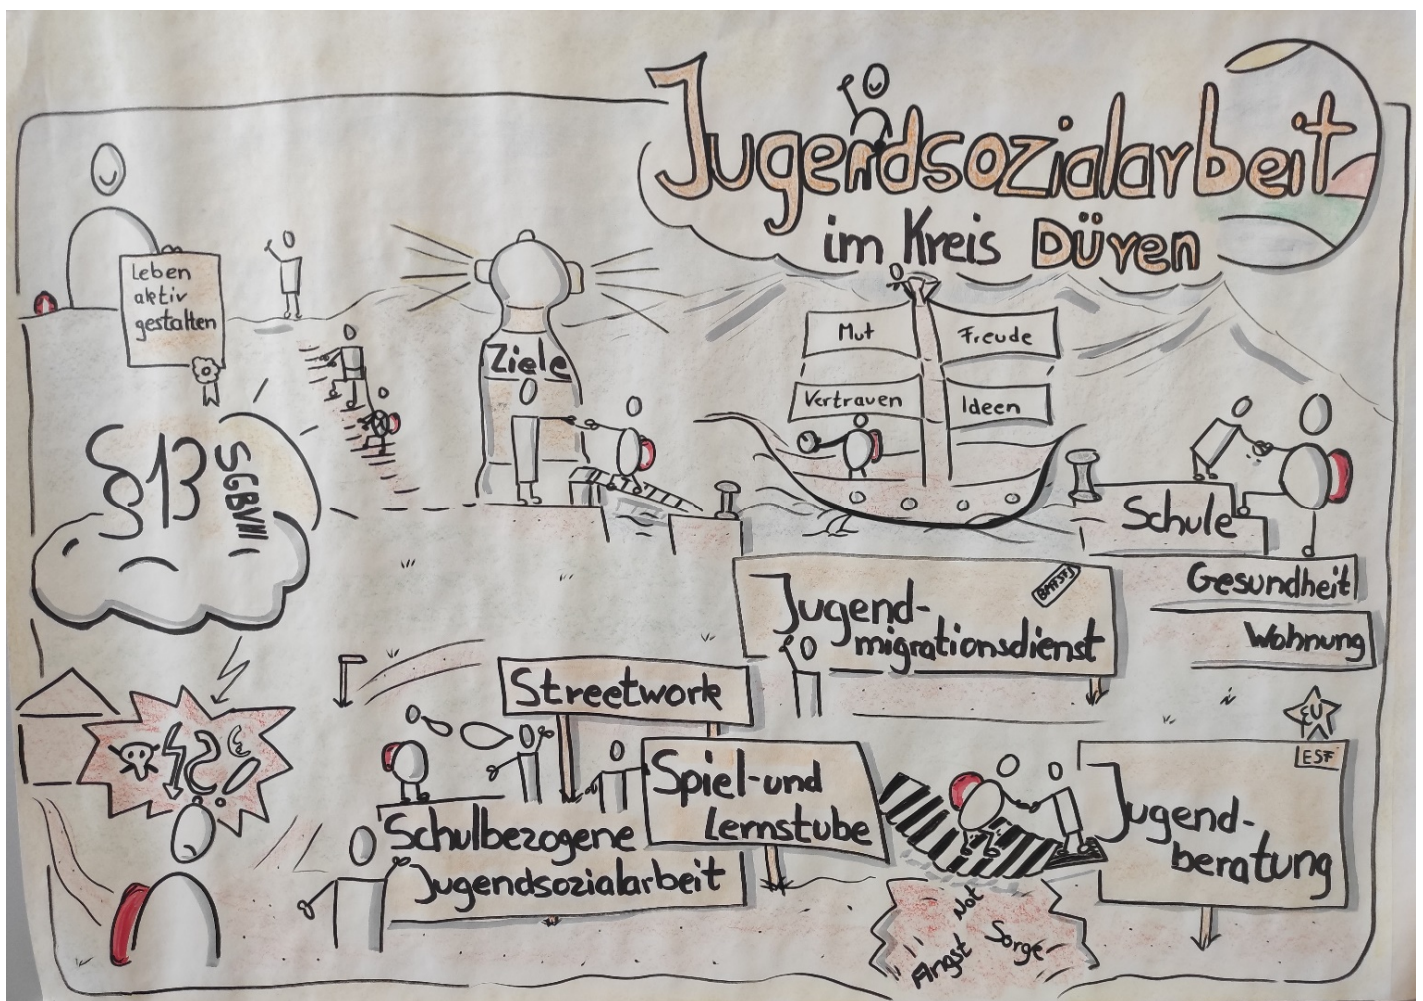 Jugendsozialarbeit
im Kreis Düren
Leben
aktiv
gestalten
Ziele
Mut
Freude
Vertrauen
Ideen
§13
SGBVIII
Schule
Gesundheit
Wohnung
Jugend-
migrationsdienst
BMFSFJ
Streetwork
Spiel-und
Lernstube
Schulbezogene
Jugendsozialarbeit
EU
ESF
Jugend-
beratung
Not
Angst
Sorge